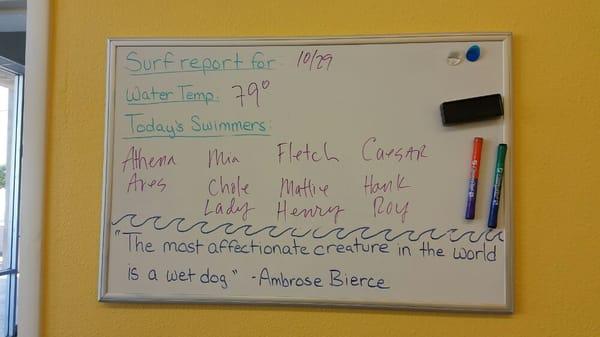 Surf report for: 10/29
Water Temp: 79°
Today's Swimmers:
Athena Mia Fletch Caesar
Ares Chole Mattie Hank
Lady Henry Roy
"The most affectionate creature in the world
is a wet dog" - Ambrose Bierce